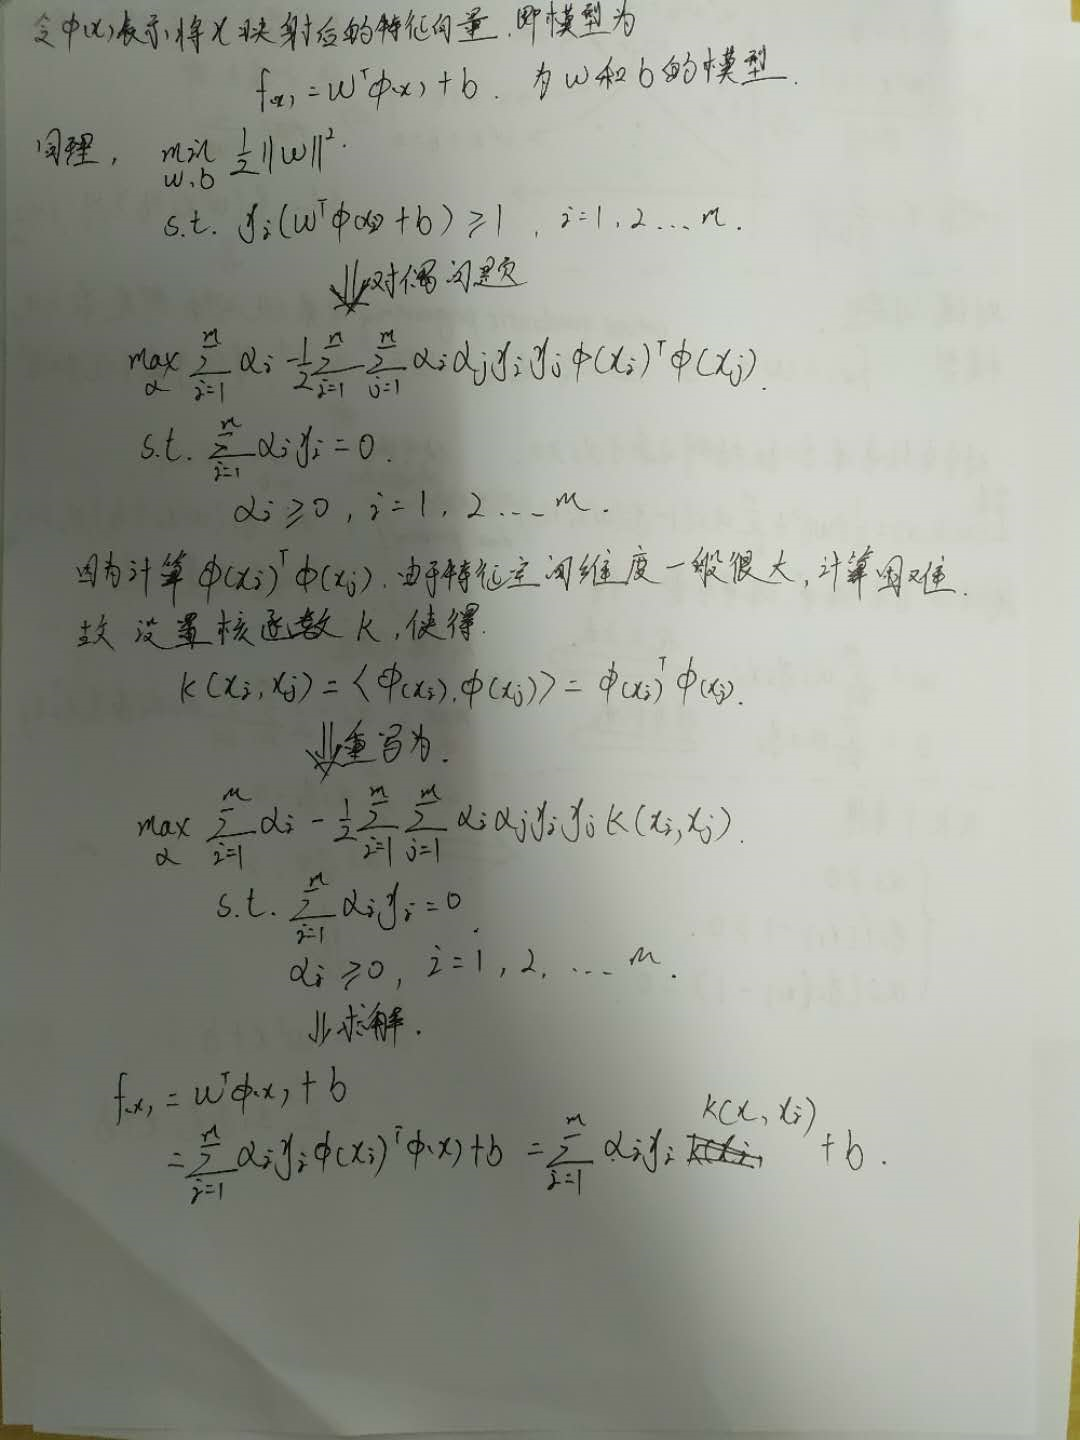 令φ(x)表示将x映射后的特征向量,即模型为
f(x) = wᵀφ(x) + b. 为w和b的模型.
同理, min_{w,b} ½||w||².
s.t. yᵢ(wᵀφ(xᵢ) + b) ≥ 1, i=1,2...m.
⇓对偶问题
max_α Σ_{i=1}^m αᵢ - ½ Σ_{i=1}^m Σ_{j=1}^m αᵢαⱼyᵢyⱼφ(xᵢ)ᵀφ(xⱼ).
s.t. Σ_{i=1}^m αᵢyᵢ = 0.
αᵢ ≥ 0, i=1,2...m.
因为计算φ(xᵢ)ᵀφ(xⱼ).由于特征空间维度一般很大,计算困难.
故设置核函数K,使得.
K(xᵢ,xⱼ) = ⟨φ(xᵢ),φ(xⱼ)⟩ = φ(xᵢ)ᵀφ(xⱼ).
⇓重写为.
max_α Σ_{i=1}^m αᵢ - ½ Σ_{i=1}^m Σ_{j=1}^m αᵢαⱼyᵢyⱼK(xᵢ,xⱼ).
s.t. Σ_{i=1}^m αᵢyᵢ = 0.
αᵢ ≥ 0, i=1,2,...m.
⇓求解.
f(x) = wᵀφ(x) + b
= Σ_{i=1}^m αᵢyᵢφ(xᵢ)ᵀφ(x) + b = Σ_{i=1}^m αᵢyᵢ K(x,xᵢ) + b.